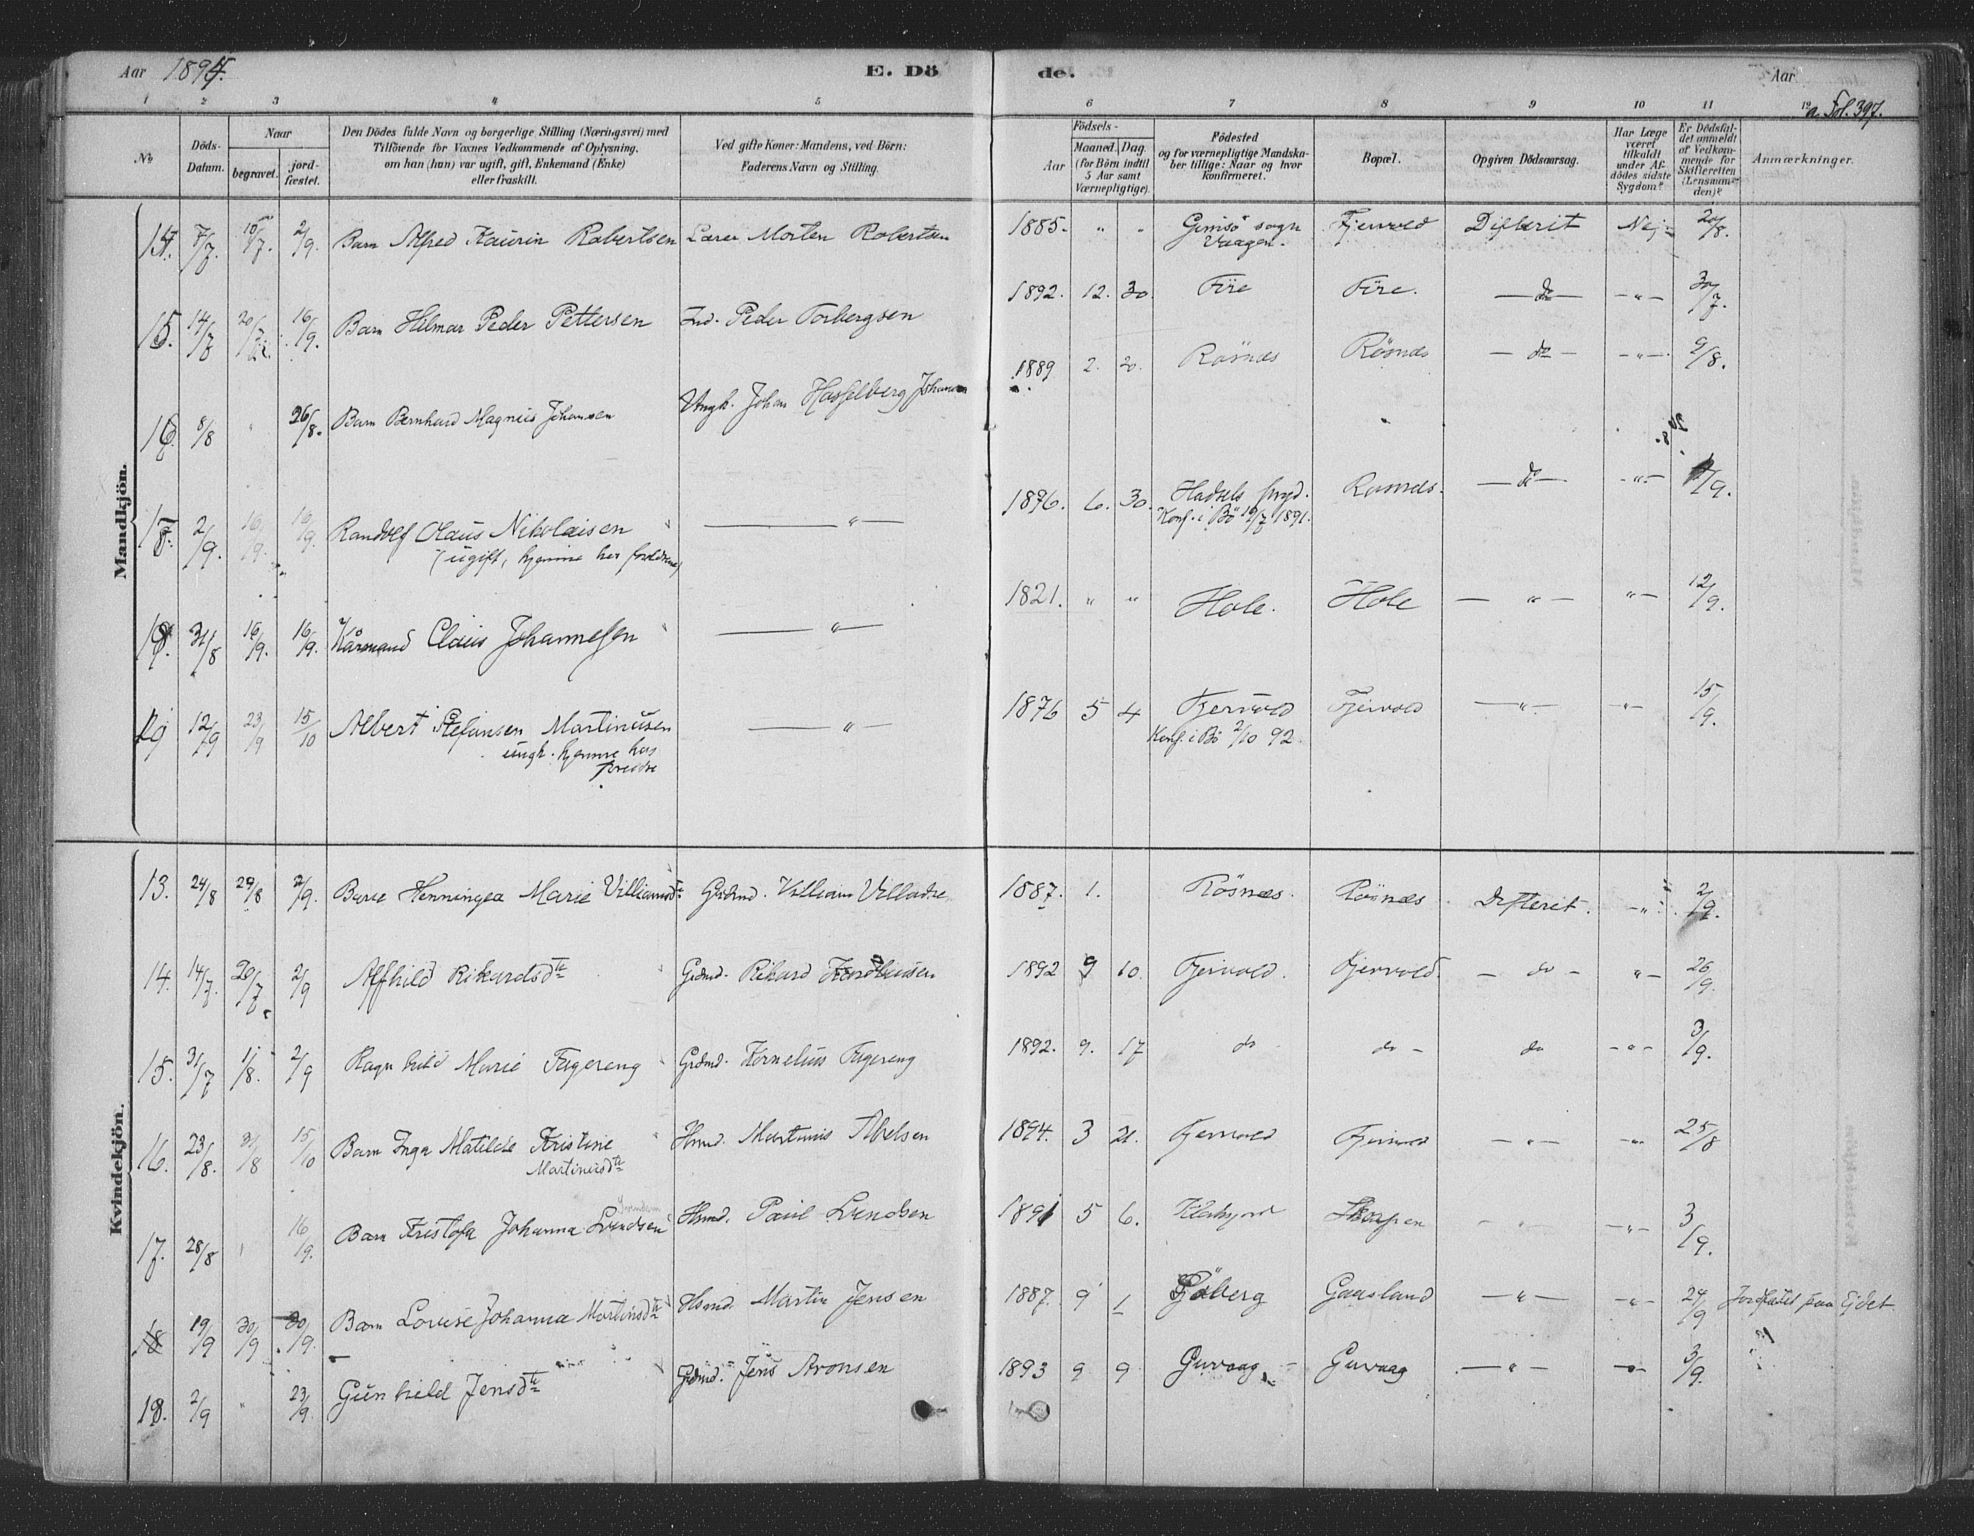 Aar 1894. E. Dö de. Aar
1 2 3 4 5 6 7 8 9 10 11 12 a. Fol. 397.
No Döds-Datum. Naar begravet. jordfæstet. Den Dödes fulde Navn og borgerlige Stilling (Næringsvei) med Tilföiende for Voxnes Vedkommende af Oplysning, om han (hun) var ugift, gift, Enkemand (Enke) eller fraskilt. Ved gifte Koner: Mandens, ved Börn: Faderens Navn og Stilling. Födsels- Aar Maaned. Dag. (for Börn indtil 5 Aar samt Værnepligtige). Födested og for værnepligtige Mandskaber tillige: Naar og hvor konfirmeret. Bopæl. Opgiven Dödsaarsag. Har Læge været tilkaldt under Afdödes sidste Sygdom? Er Dödsfaldet anmeldt af Vedkommende for Skifteretten (Lensmanden)? Anmærkninger.
Mandkjön.
7/7 10/7 2/9. Barn Alfred Kaurin Robertsen Lærer Morten Robertsen 1885. " " Gimsö sogn Vaagen. Fjervold Difterit Nej 20/8.
15. 14/7 20/7 16/9. Barn Hilmar Peder Pettersen Ind. Peder Torbergsen 1892. 12. 30. Fire Fire. do - " - 30/7.
16. 8/8 " 26/8. Barn Bernhard Magnus Johansen Ungk. Johan Hasselberg Johansen 1889 2. 20. Rösnes Rösnes - do - - " - 9/8.
2/9. 16/9. 16/9. Randolf Claus Nikolaisen (ugift, hjemme hos forældrene) " 1876. 6. 30. Hadsels prgd. Konf. i Bö 1891. Rösnes. - do - - " - /9.
31/8 16/9. 16/9. Kårmand Claus Johannesen " 1821. " " Hole. Hole - " - - " - 12/9.
19 12/9 23/9 15/10 Albert Stefansen Martinusen ungk. hjemme hos forældre " 1876 5 4 Fjervold Konf. i Bö 2/10 92. Fjervold - " - - " - 15/9.
Kvindekjön.
13. 24/8 29/8 2/9. Barn Henningea Marie Villiamsdtr Grdmd. Villiam Villadsen 1887. 1. Rösnæs. Rösnæs Difterit. - " - 2/9.
14. 14/7. 20/7. 2/9 Alfhild Rikardsdtr Grdmd. Rikard 1892 9 10. Fjervold. Fjervold - do - " - 26/9.
15. 31/7 1/8. 2/9 Ragnhild Marie Fagereng Grdmd. Kornelius Fagereng 1892. 9. 17 do do - do - " - 3/9.
16. 23/8. 31/8 15/10 Barn Inga Matilde Kristine Martinusdtr Hsmd. Martinus Abelsen 1894. 3 21. Fjervold Fjervold - " - - " - 25/8
17. 28/8 " 16/9. Barn Kristofa Johanna Lundsen Hsmd. Paul Lundsen 1891 5 6. - " - - " - 3/9.
18 19/9 30/9 30/9. Barn Lovise Johanna Martinsdtr Hsmd. Martin Jensen 1887. 9 1 Gjöberg Gaasland - " - - " - 24/9 Jordfæstet paa Ejdet
18. 2/9 " 23/9. Gunhild Jensdtr Grdmd. Jens Aronsen 1893 9 9 Guvaag Guvaag - " - - " - 3/9.